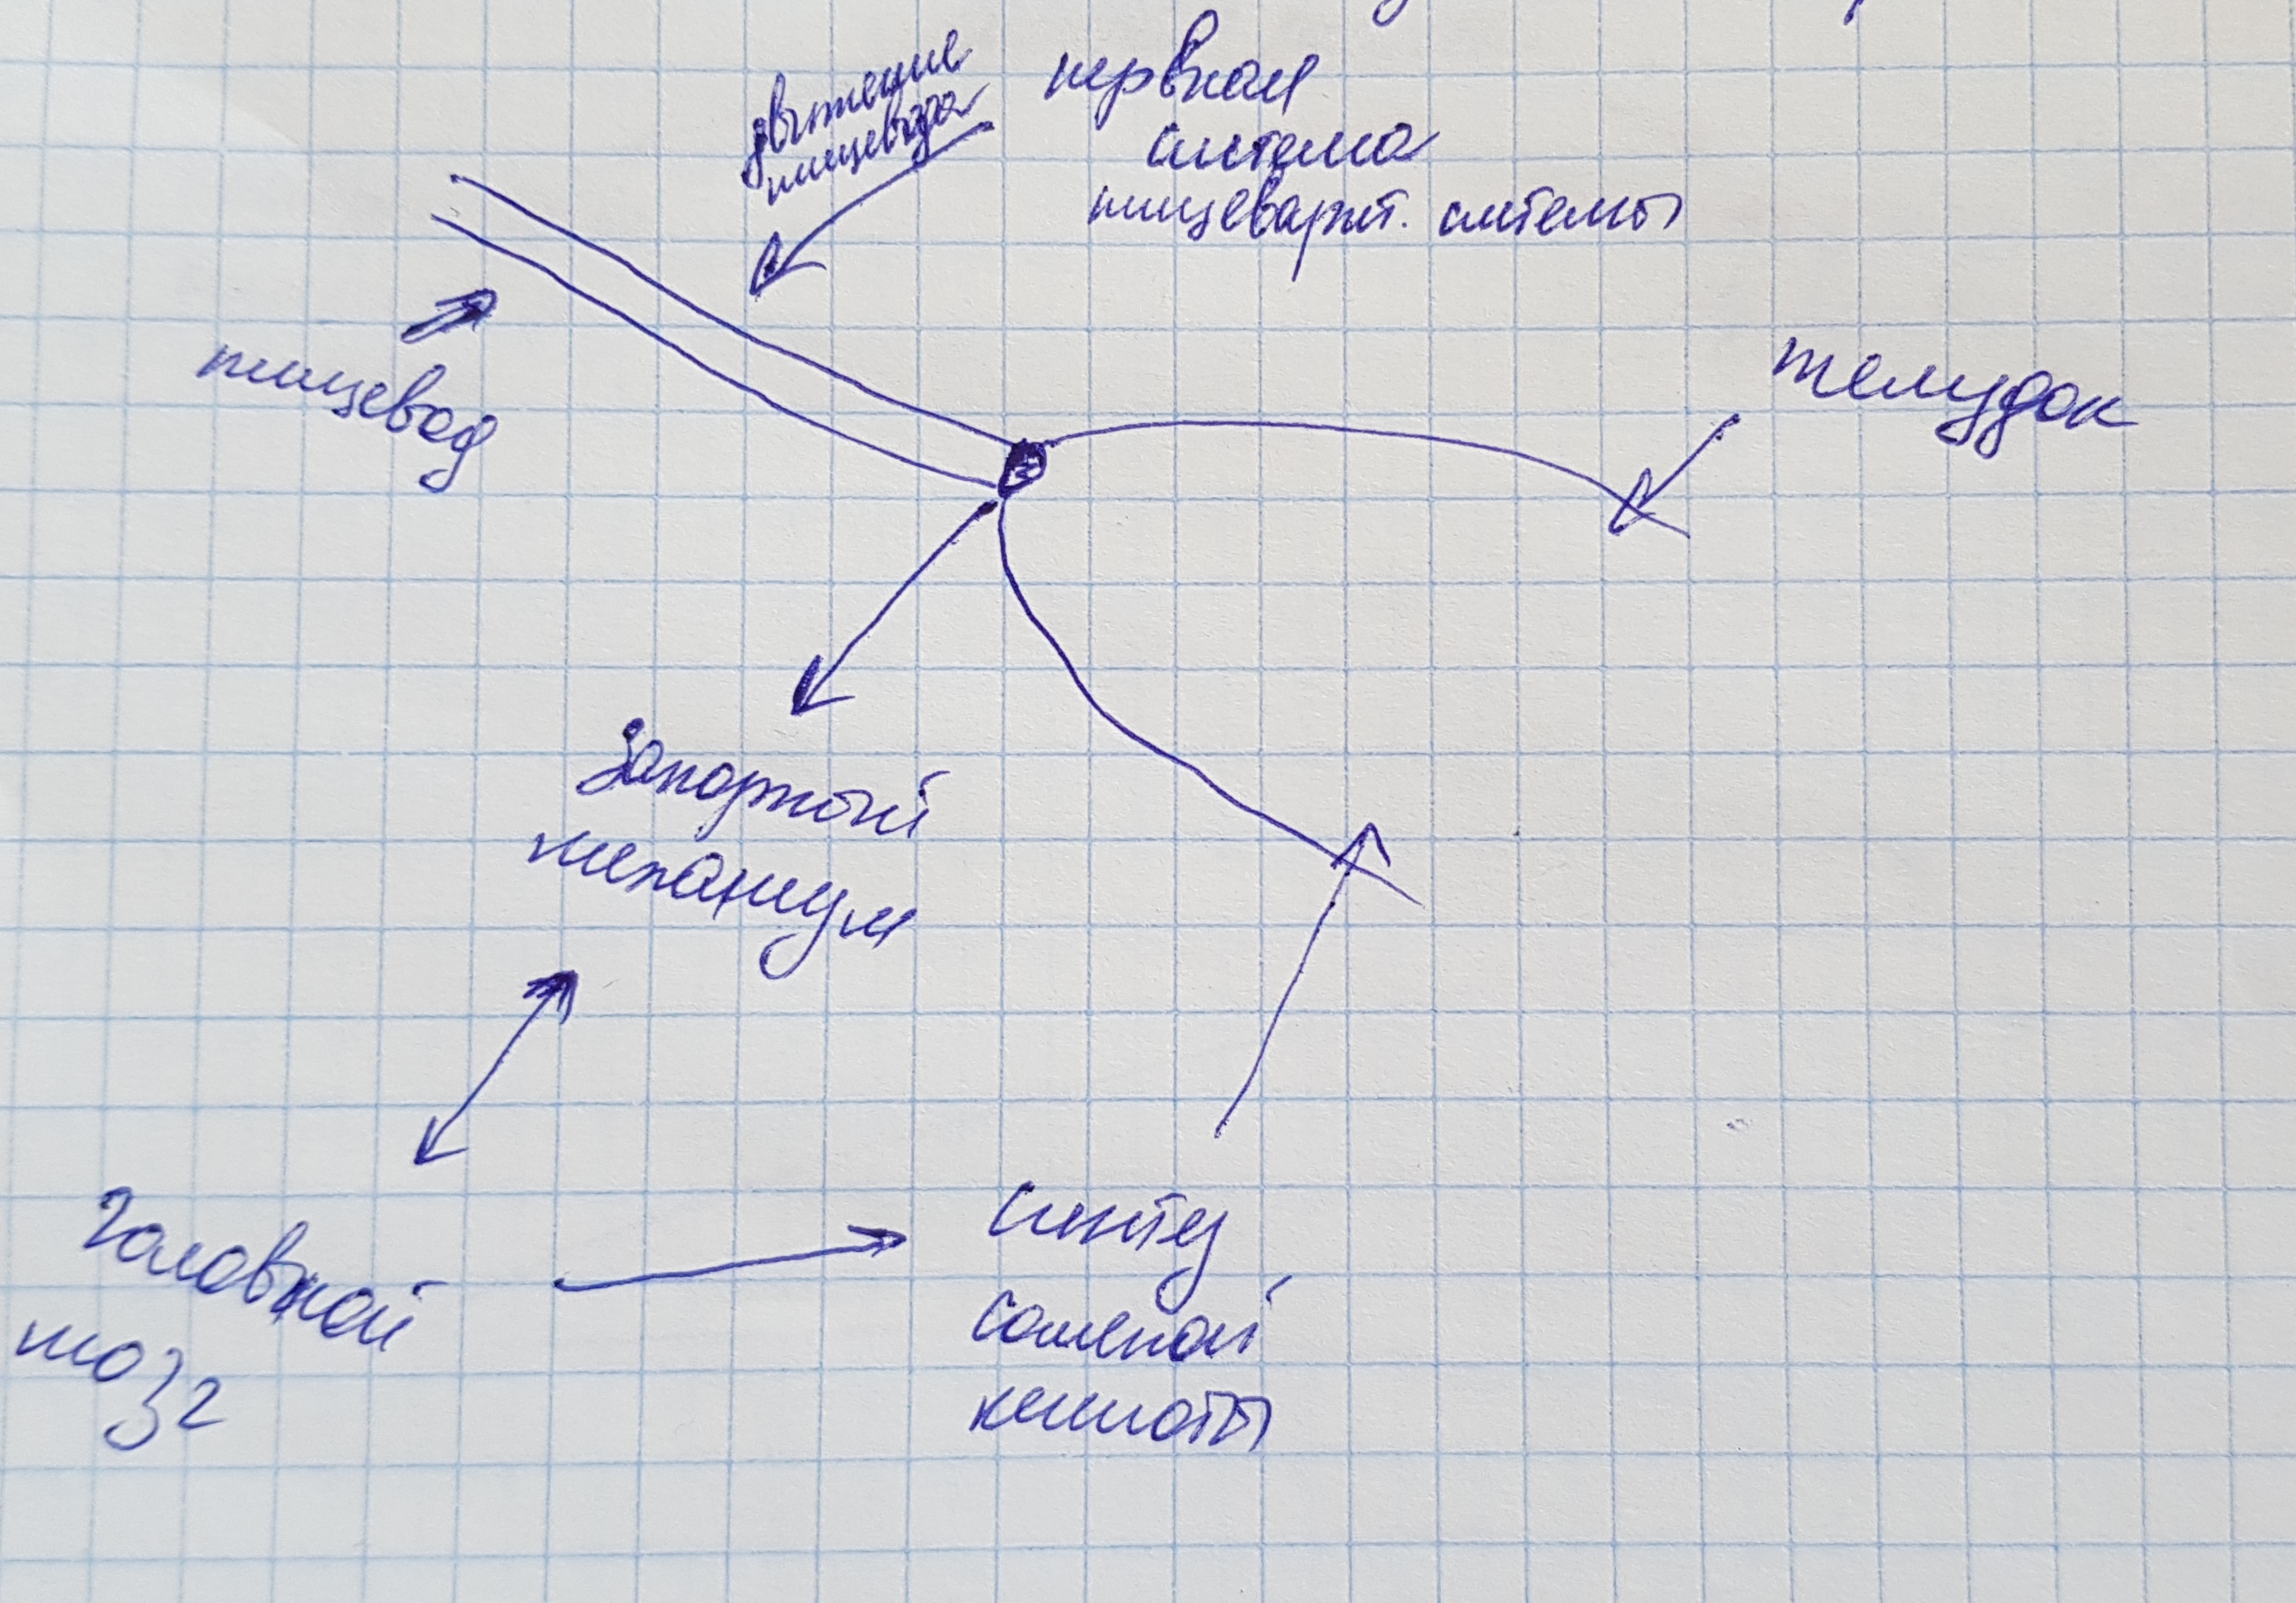 движение
пищевода
нервная
система
пищеварит. системы
пищевод
желудок
Запорный
механизм
Головной
мозг
Синтез
соляной
кислоты